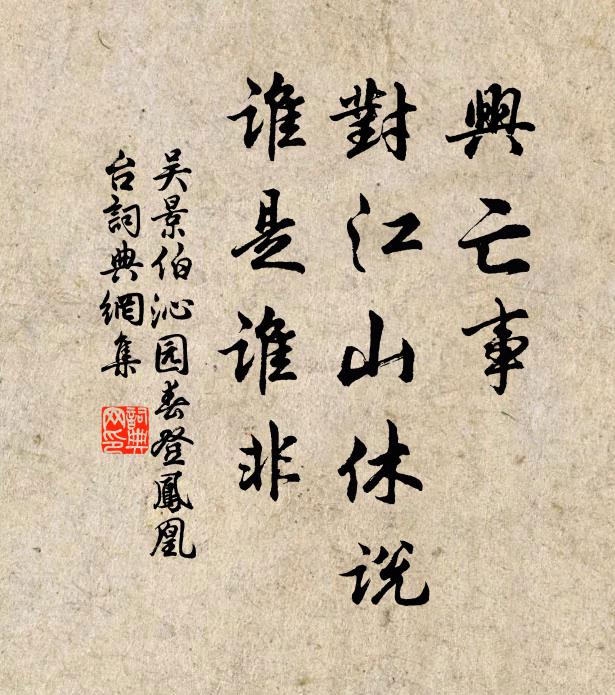 興亡事
對江山休説
誰是誰非
吴景伯沁园春登鳳凰
台詞典網集
詞典
网印